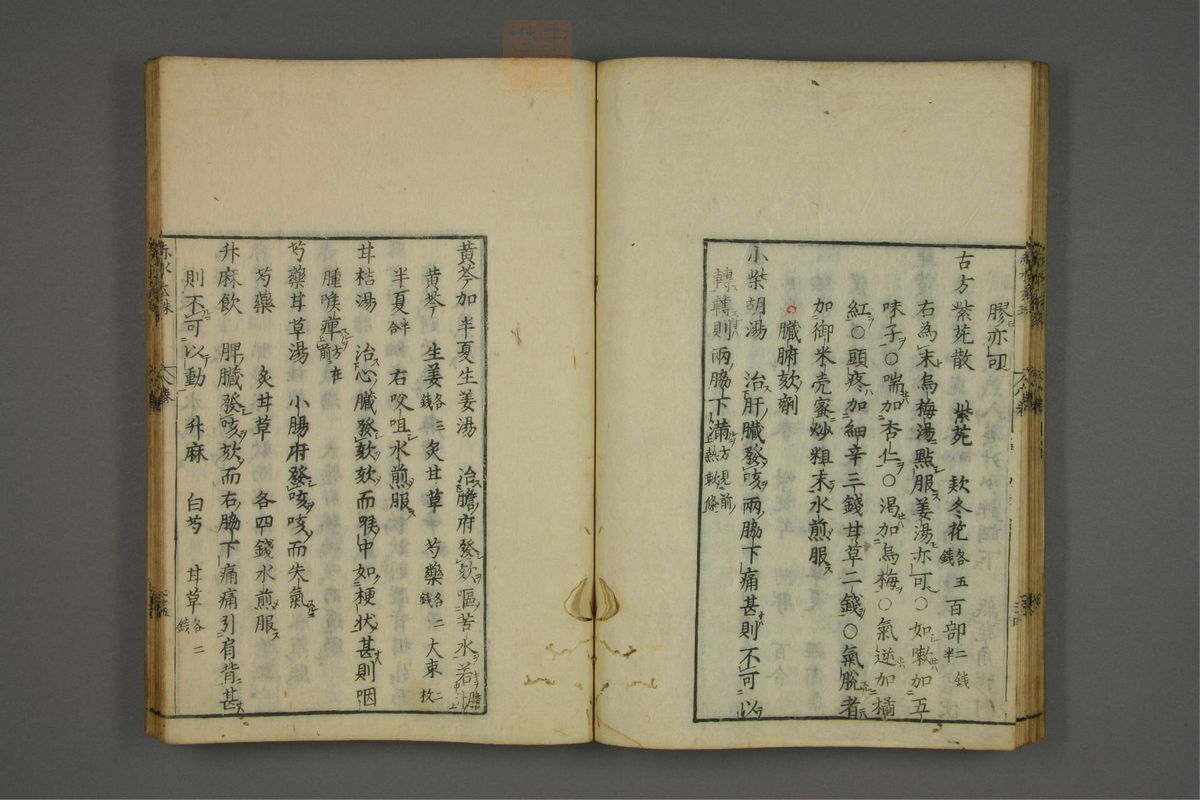 膠亦可
古方紫菀散　紫菀　欵冬花各五錢百部二錢半
右為末烏梅湯點服姜湯亦可○如嗽加五
味子○喘加杏仁○渴加烏梅○氣逆加橘
紅○頭疼加細辛三錢甘草二錢○氣脫者
加御米壳蜜炒粗末水煎服
臟腑欬劑
小柴胡湯　治肝臟發咳兩脇下痛甚則不可以
轉轉則兩脇下滿方見前
黃芩加半夏生姜湯　治膽府發欬嘔苦水若膽
黃芩　生姜各三錢炙甘草　芍藥各二錢大棗二枚
半夏　右㕮咀水煎服
甘桔湯　治心臟發欬欬而喉中如梗状甚則咽
腫喉痺方在前
芍藥甘草湯　小腸府發咳咳而失氣
芍藥　炙甘草　各四錢水煎服
升麻飲　脾臟發咳欬而右脇下痛痛引肩背甚
則不可以動　升麻　白芍　甘草各二錢